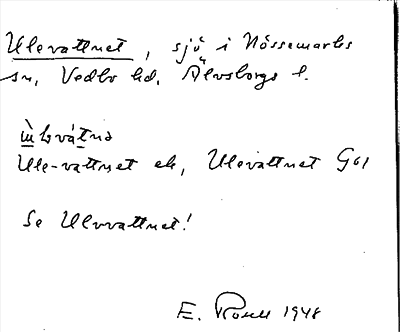 Ulevattnet, sjö i Nössemarks
sn, Vedbo hd, Älvsborgs l.
Ule-vattnet ek, Ulevattnet GSl
Se Ulvvattnet!
E. 1948